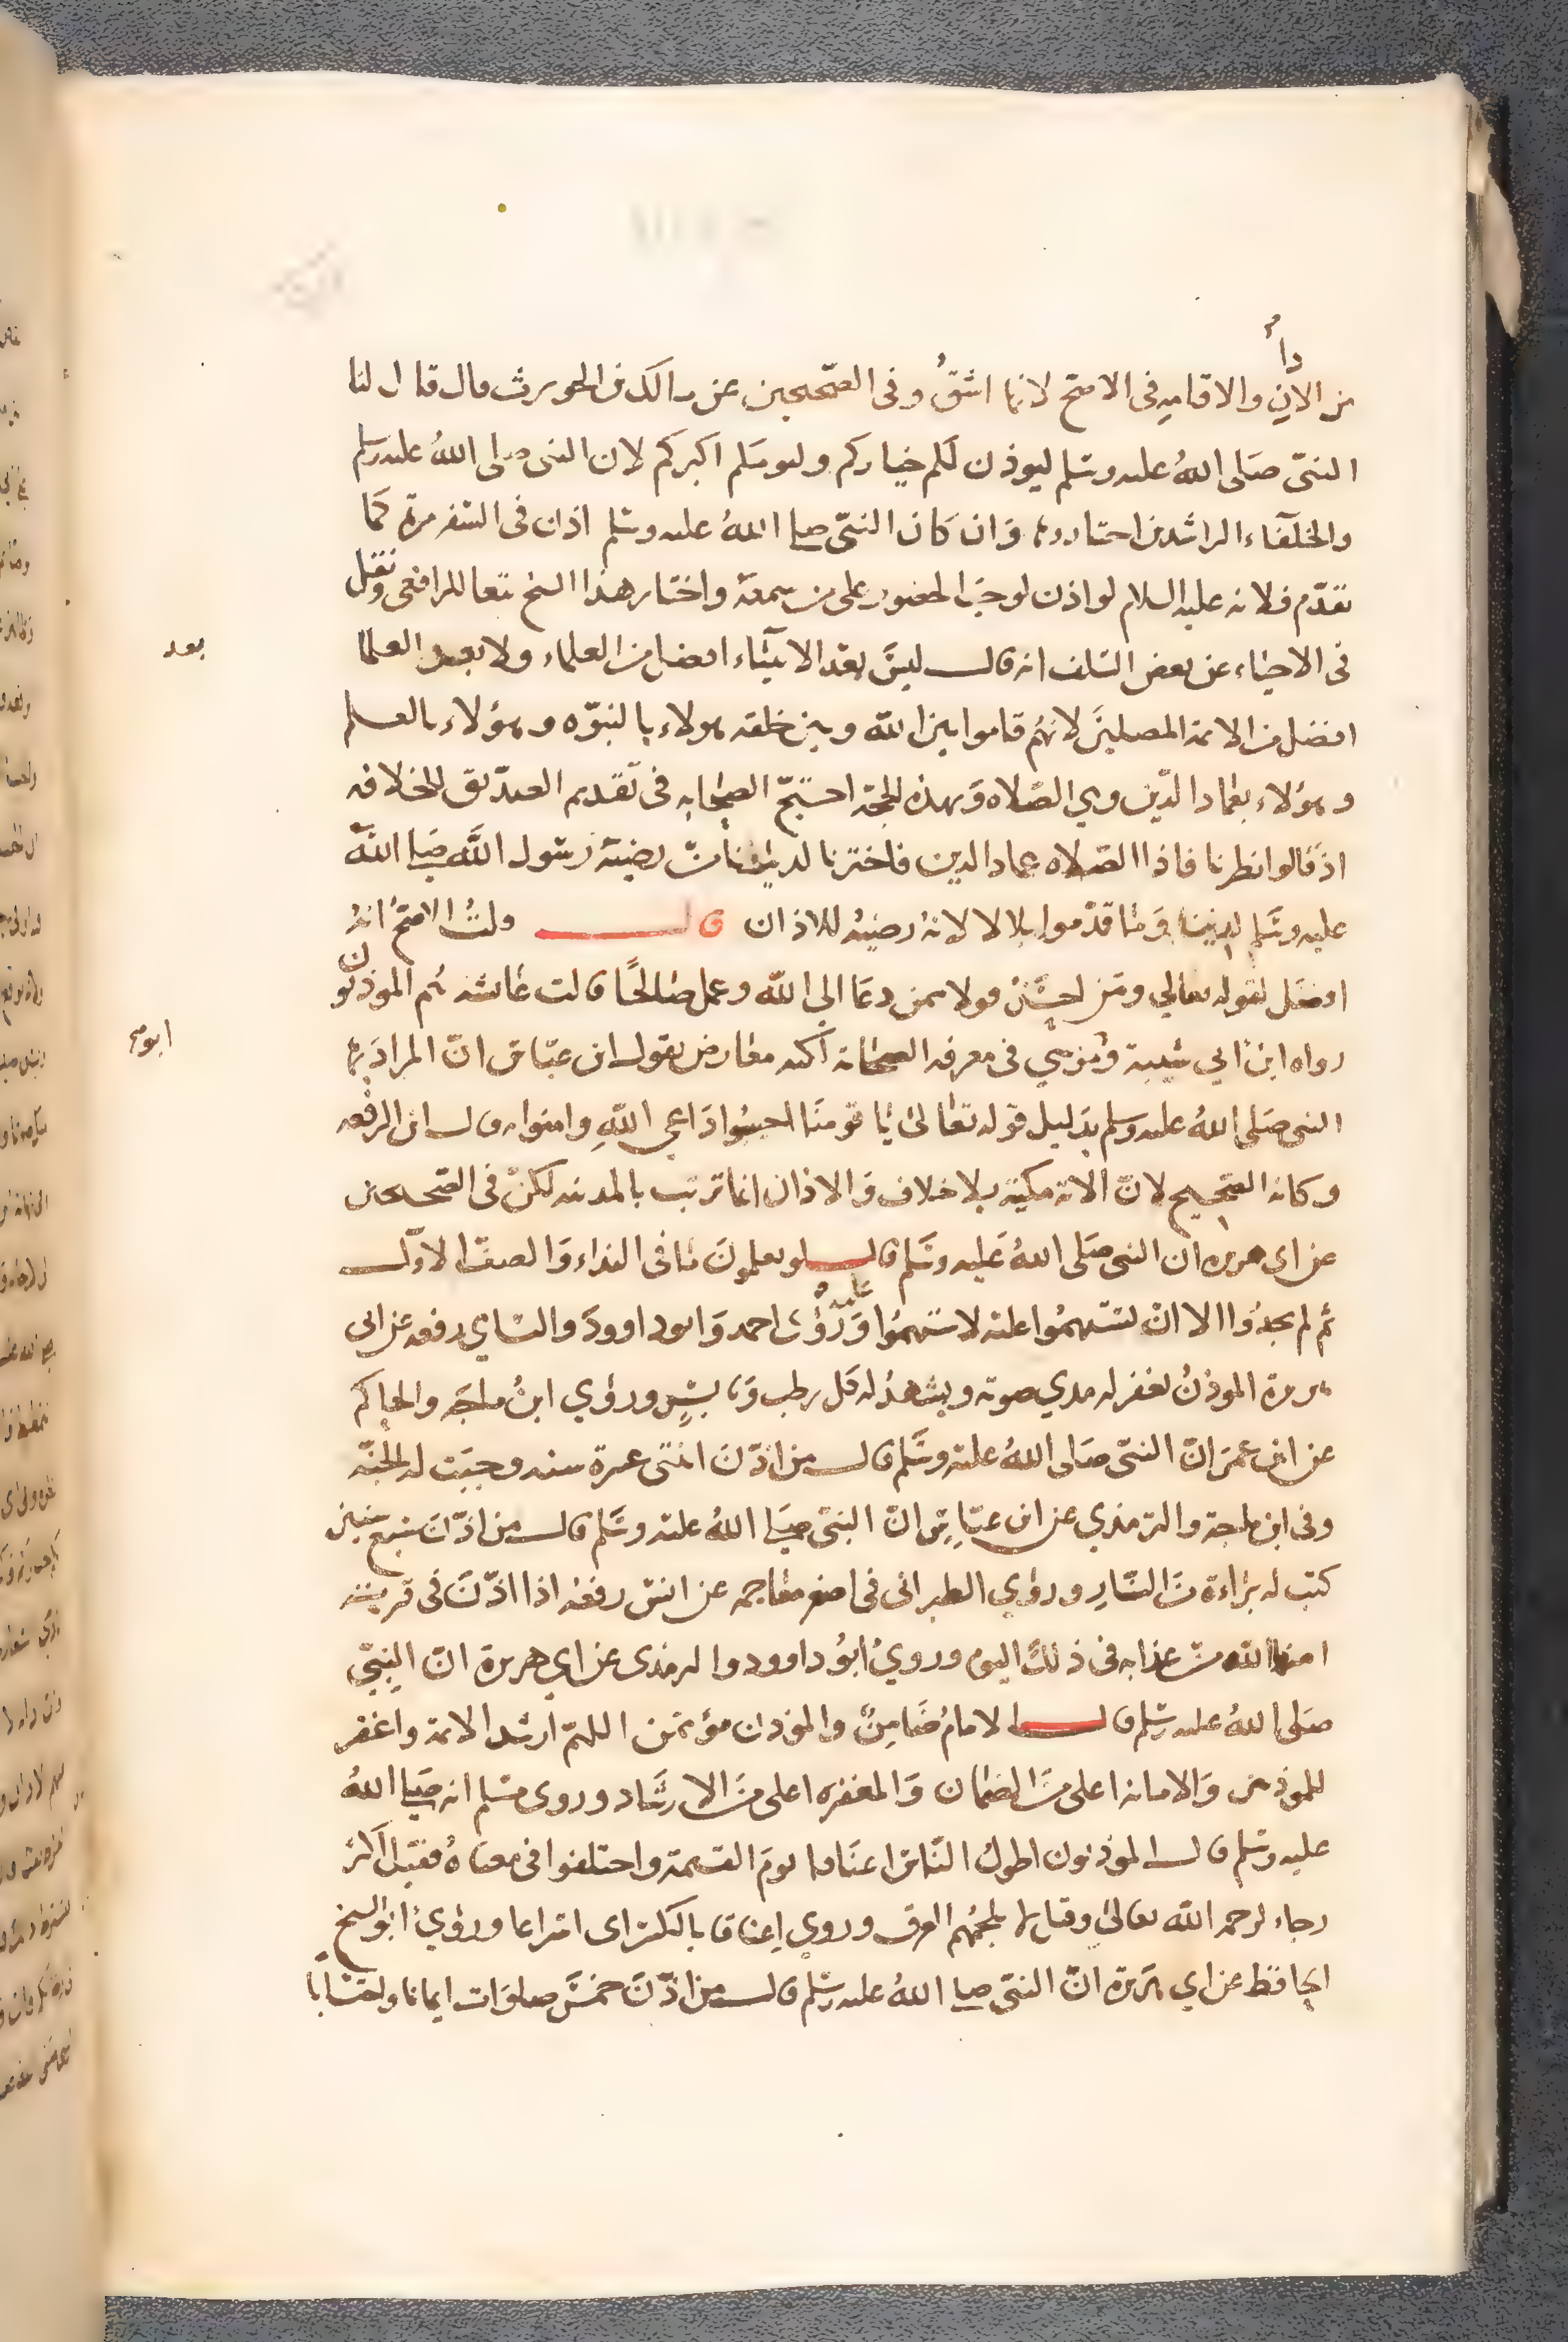 من الاذان والاقامه فى الاصح لانها اشقُّ وفى الصّحيحين عن مالك بن الحويرث قال قال لنا
النبىّ صَلى اللهُ عليه وسَلم ليوذن لَكم خياركم وليومكم اكبركم لان النبى صلى اللهُ عليه وسلم
والخلَفاء الراشدين اختاروها وَان كَان النبىّ صلى اللهُ عليه وسَلم اذن فى السَفر مرة كَما
تقدّم فلانه عليه السلام لو اذن لوجبَ الحضور على من سمعَهُ واختار هذا الشيخ تبعا للرافعى ونقل
فى الاحيَاء عن بعض السَلف انه قال ليسَ بعَد الانبيَاء افضل من العلماء ولا بعد العلما
بعد
افضل من الائمة المصلينَ لانهُم قاموا بين اللّه وبين خلقه هولاء بالنبوّه وهؤلاء بالعلم
وهؤلاء بعمَاد الدّين وهي الصَلاه وَبهذه الحجّة احتجّ الصحَابه فى تَقديم الصدّيق للخلافه
اذ قالوا نظرنا فاذا الصَلاه عماد الدين فاخترنا لدنيانا منْ رضيَهُ رسَول اللَّه صَلى اللهُ
عليه وسَلم لديننا وَمَا قدّموا بلالا لانهُ رضيَهُ للاذان قال ولتُ الاصحُ انهُ
افضَل لقوله تعالي ومَن احسَنُ قولا ممن دعَا الى اللّه وعمل صَالحًا قالت عَائشه هُم الموذنون
رواه ابن ابي شيبة وَمُوسي فى معرفه الصحَابة لكنه معَارض بقول ابن عبّاس انّ المرادَ بها
ابو
النبى صَلى اللهُ عليه وسلم بدَليل قوله تعَالىٰ يَا قومنَا اجيبُوا دَاعي اللّهِ وامنوا به قال ابن الرفعه
وكانه الصّحيح لانّ الاية مكيَة بلا خلاف وَالاذان انما ترتب بالمدينه لكنْ فى الصّحيحين
عن ابى هريره ان النبى صَلى اللهُ عَليه وسَلم قال لو يعلمونَ مَا فى النداء وَالصفّ الاوّل
ثم لم يجدُوا الا انْ يستَهِمُوا عليه لاستهمُوا عليه وَرَوُى احمد وَابود اوودَ والنسَاي رفعه عن ابى
هريرة الموذنُ يغفر له مدي صوته ويشهدُ له كَل رطب وَيَابسٍ وروَي ابنُ ماجَه والحاكم
عن ابن عمَر انّ النبىّ صَلى اللهُ عليهْ وسَّلم قال من اذّنَ اثنتى عشرة سنه وجَبَت له الجنّه
وفى ابن ماجة والترمذي عن ابن عبّاسٍ انّ النبىّ صَلى اللهُ عليه وسَلم قال من اذّنَ سَبع سنين
كتب له برَاءة منَ النَارِ وروَي الطبرانى فى اصغر معَاجمه عن انسْ رفعَهُ اذا اذّنَ فى قريَة
امنها اللّه منْ عذابه فى ذلك اليوم ورويُ ابُو داوود والترمذى عن ابي هريرة انّ النبيّ
صَلى اللهُ عليه وسَلم قال الامامُ ضَامِنٌ والموذن مؤتمن اللهمّ ارشد الائمة وَاغفر
للموذنين وَالامانه اعلى منَ الضمان وَالمغفره اعلى منَ الارشَاد وروى مسَلم انه صَلى اللهُ
عليه وسَلم قال الموذنون اطولُ النَاس اعنَاقا يومَ القيمة واختلفوا فى معنَاهُ فقيل اَكثر
رجاء لرحمه اللّه تعالىٰ وقيل لا يلجُمهُم العرق وروي اِعناقا بالكسَر اى اسراعا وروَيُ ابُو الشيخ
الحافظ عن ابي هَريرة انّ النبىّ صلى اللهُ عليه وسَلم قال من اذّنَ خمسَ صلوَات ايمانا واحتسَابًا